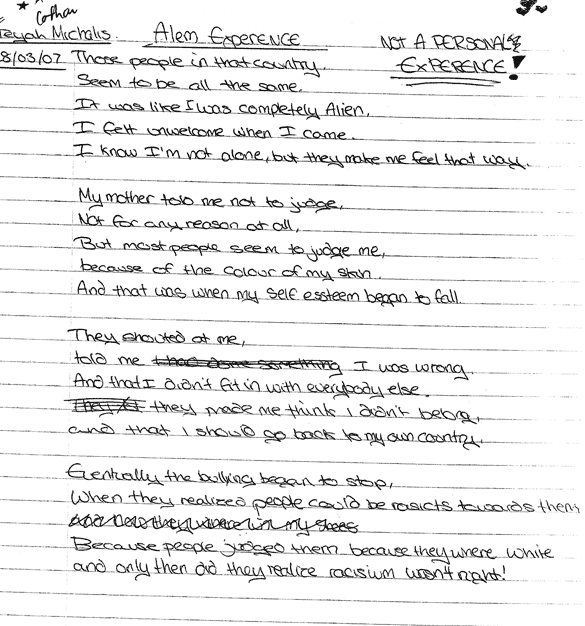 Alem Experence
NOT A PERSONAL
EXPERENCE!
Michalis.
8/03/07 Those people in that country.
Seem to be all the same.
It was like I was completely Alien,
I felt unwelcome when I came.
I know I'm not alone, but they make me feel that way.
My mother told me not to judge,
Not for any reason at all,
But most people seem to judge me,
because of the colour of my skin.
And that was when my self essteem began to fall.
They shouted at me,
told me I was wrong.
And that I didn't fit in with everybody else.
they made me think I didn't belong,
and that I should go back to my own country.
Eventually the bullking began to stop,
When they realized people could be rasicts towards them
Because people judged them because they where white
and only then did they realize racisium wasn't right!